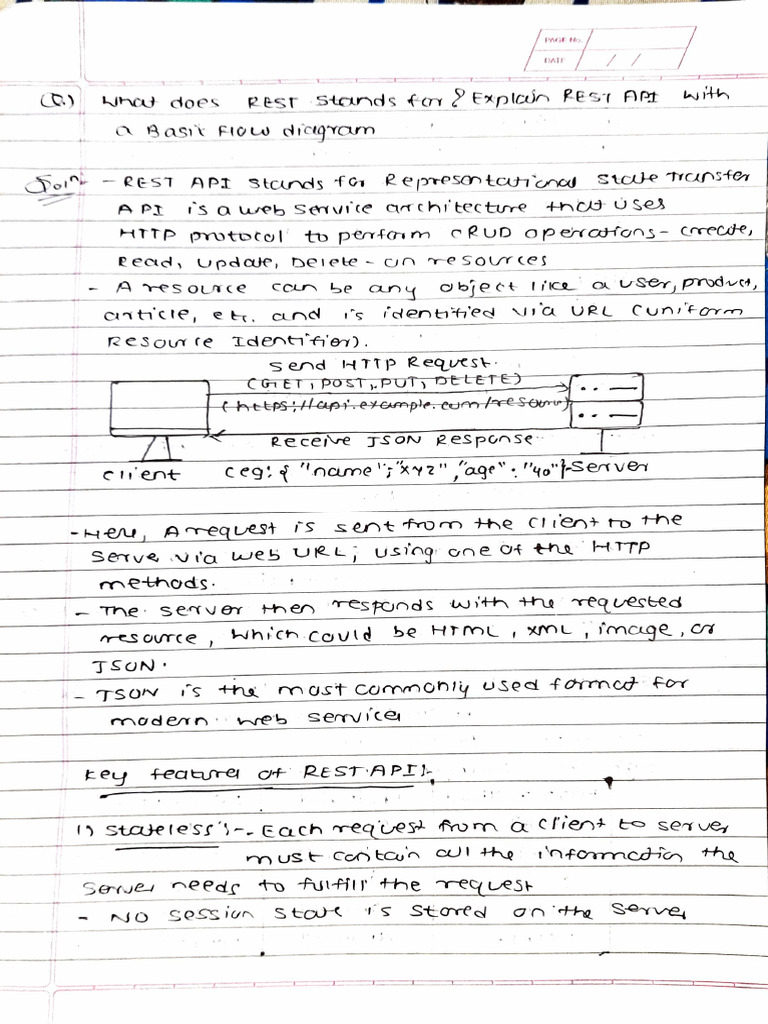 PAGE No.
DATE / /
(Q.) What does REST stands for? Explain REST API with
a Basic Flow diagram
Soln:- - REST API stands for Representational State Transfer
API is a web service architecture that uses
HTTP protocol to perform CRUD operations - create,
Read, Update, Delete - on resources
- A resource can be any object like a user, product,
article, etc. and is identified via URL (uniform
Resource Identifier).
Send HTTP Request.
(GET, POST, PUT, DELETE)
(https://api.example.com/resource)
Receive JSON Response
Client (eg: { "name":"XYZ","age":"40"} Server
- Here, A request is sent from the client to the
Serve via web URL, using one of the HTTP
methods.
- The server then responds with the requested
resource, which could be HTML, XML, image, or
JSON.
- JSON is the most commonly used format for
modern web services
Key features of REST API:-
1) Stateless:- - Each request from a client to server
must contain all the information the
server needs to fulfill the request
- No session state is stored on the server